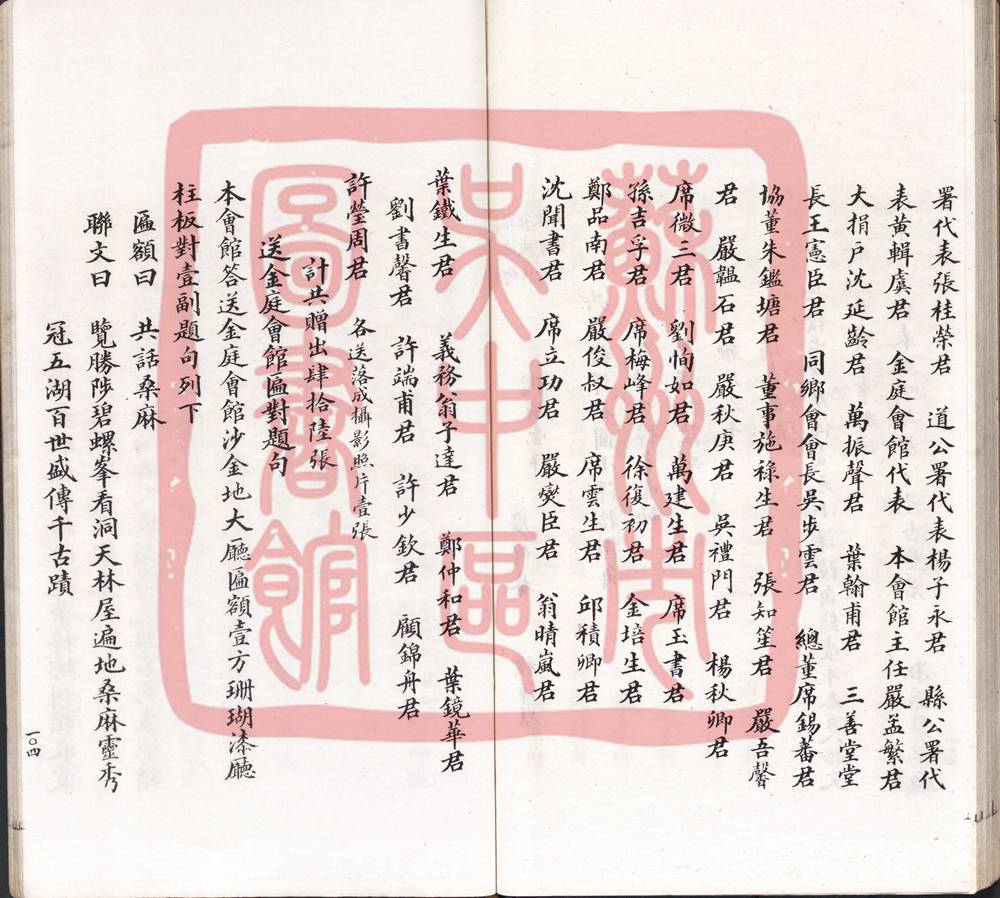 署代表張桂榮君　道公署代表楊子永君　縣公署代
表黃輯虞君　金庭會館代表　本會館主任嚴孟繁君
大捐戶沈延齡君　萬振聲君　葉翰甫君　三善堂堂
長王憲臣君　同鄉會會長吳步雲君　總董席錫蕃君
協董朱鑑塘君　董事施祿生君　張知笙君　嚴吾馨
君　嚴韞石君　嚴秋庚君　吳禮門君　楊秋卿君
席微三君　劉恂如君　萬建生君　席玉書君
孫吉孚君　席梅峰君　徐復初君　金培生君
鄭品南君　嚴俊叔君　席雲生君　邱積卿君
沈聞書君　席立功君　嚴燮臣君　翁晴嵐君
葉鐵生君　義務翁子達君　鄭仲和君　葉鏡華君
劉書馨君　許端甫君　許少欽君　顧錦舟君
許瑩周君　各送落成攝影照片壹張
計共贈出肆拾陸張
送金庭會館匾對題句
本會館答送金庭會館涉金地大廳匾額壹方珊瑚漆廳
柱板對壹副題句列下
匾額曰　共話桑麻
聯文曰　覽勝陟碧螺峯看洞天林屋遍地桑麻靈秀
冠五湖百世盛傳千古蹟
一〇四
蘇州市
吳中區
圖書館